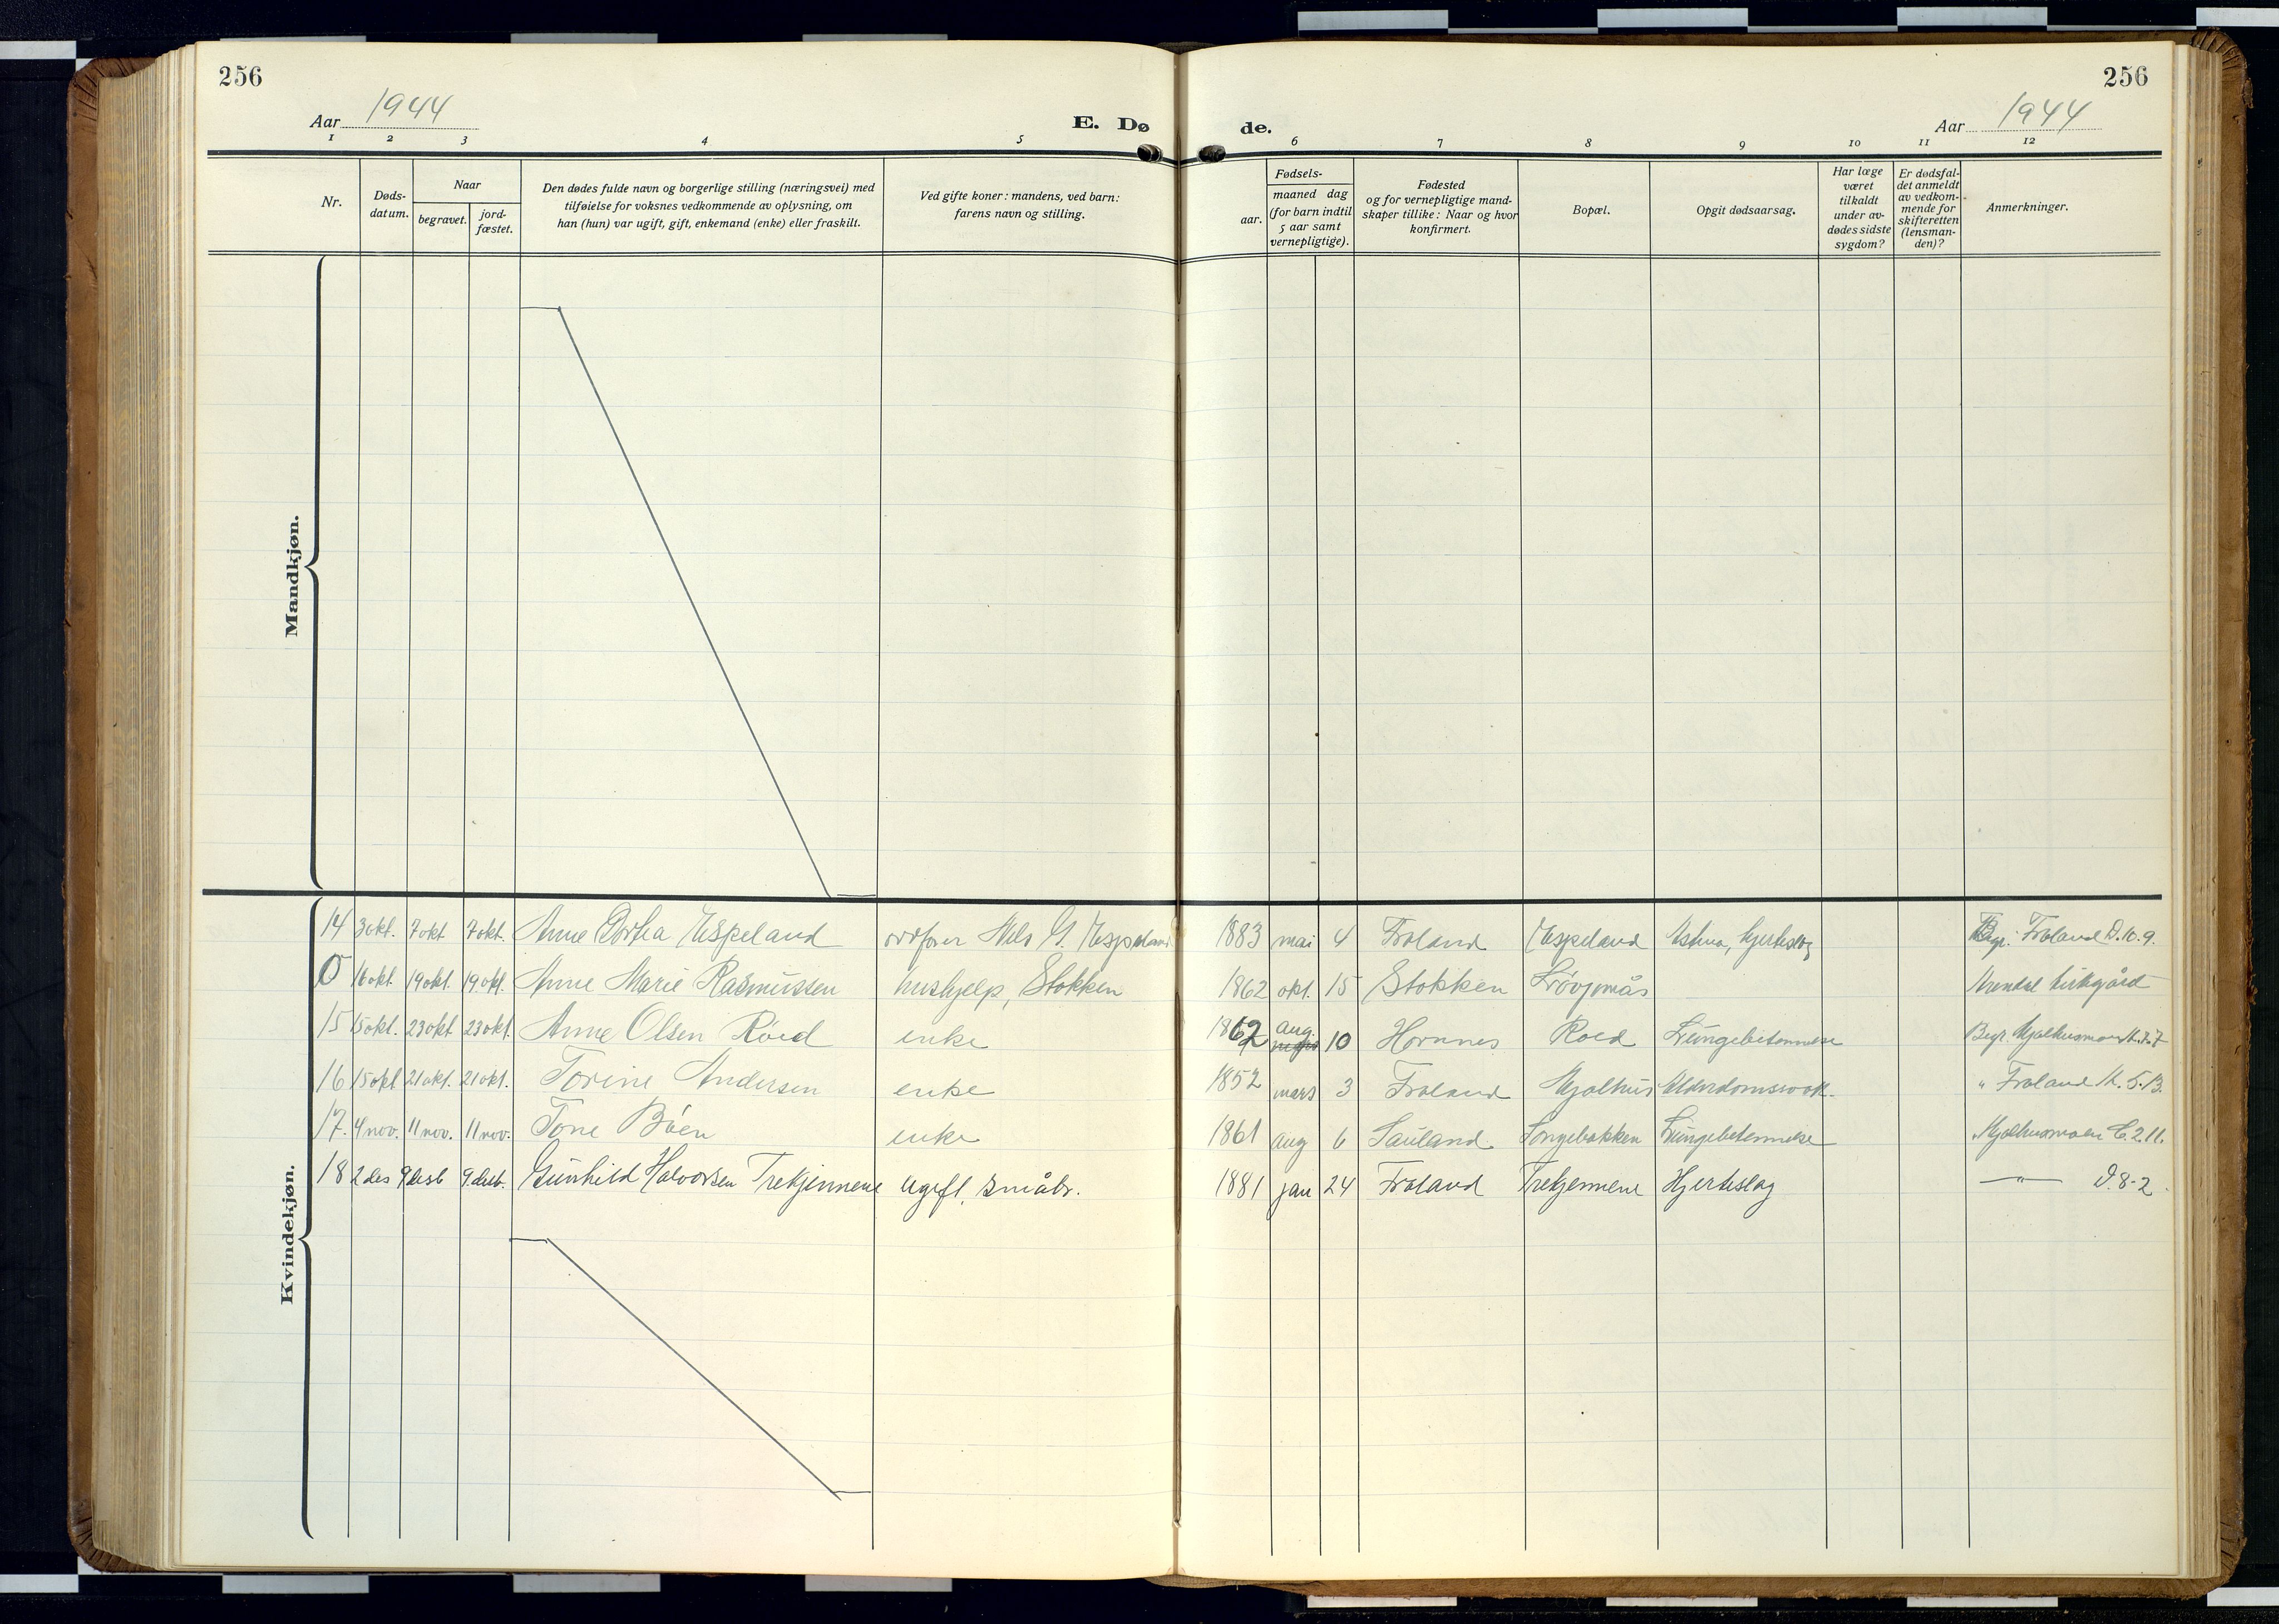 256
256
Aar 1944
E. Dø
de.
Aar 1944
1 2 3 4 5 6 7 8 9 10 11 12
Nr.
Døds-
datum.
Naar
begravet.
jord-
fæstet.
Den dødes fulde navn og borgerlige stilling (næringsvei) med
tilføielse for voksnes vedkommende av oplysning, om
han (hun) var ugift, gift, enkemand (enke) eller fraskilt.
Ved gifte koner: mandens, ved barn:
farens navn og stilling.
Fødsels-
aar.
maaned dag
(for barn indtil
5 aar samt
vernepligtige).
Fødested
og for vernepligtige mand-
skaper tillike: Naar og hvor
konfirmert.
Bopæl.
Opgit dødsaarsag.
Har læge
været
tilkaldt
under av-
dødes sidste
sygdom?
Er dødsfal-
det anmeldt
av vedkom-
mende for
skifteretten
(lensman-
den)?
Anmerkninger.
Mandkjøn.
Kvindekjøn.
14 3 okt. 7 okt 7 okt. Anne Espeland ordfører Nels G. Espeland 1883 mai 4 Froland Espeland Astma, hjerteslag Begr. Froland D.10.9.
0 16 okt. 19 okt. 19 okt. Anne Marie Rasmussen hushjelp, Stokken 1862 okt. 15 Stokken Løvjomås Arendal kirkgård
15 15 okt. 23 okt 23 okt. Anne Olsen Röed enke 1862 aug. 10 Hornnes Roed Lungebetennelse Begr. Mjølhusmoen
16 15 okt 21 okt. 21 okt. Torine Andersen enke 1852 mars 3 Froland Mjølhus Alderdomssvakk. " Froland K.5.13.
17. 4 nov. 11 nov. 11 nov. Tone Böen enke 1861 aug 6 Sauland Songebakken Lungebetennelse Mjølhusmoen C.2.11.
18 2 des 9 desb 9 desb. Gunhild Halvorsen Trekjennene Ugift, småbr. 1881 jan 24 Froland Trekjennene Hjerteslag — " — D.8-2.